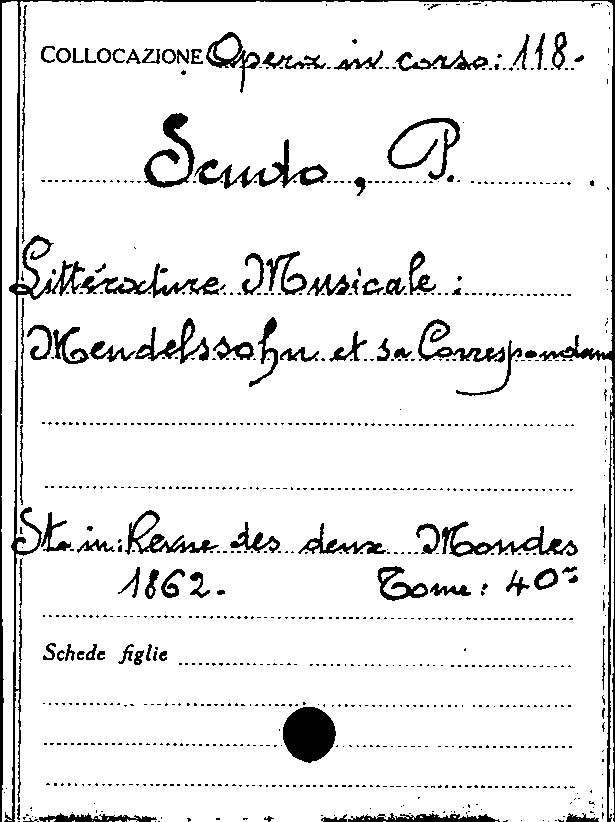 COLLOCAZIONE Opera in corso: 118.
Scudo, P.
Littérature Musicale:
Mendelssohn et sa Correspondanc
Sta in: Revue des deux Mondes
1862. Tome: 40º
Schede figlie